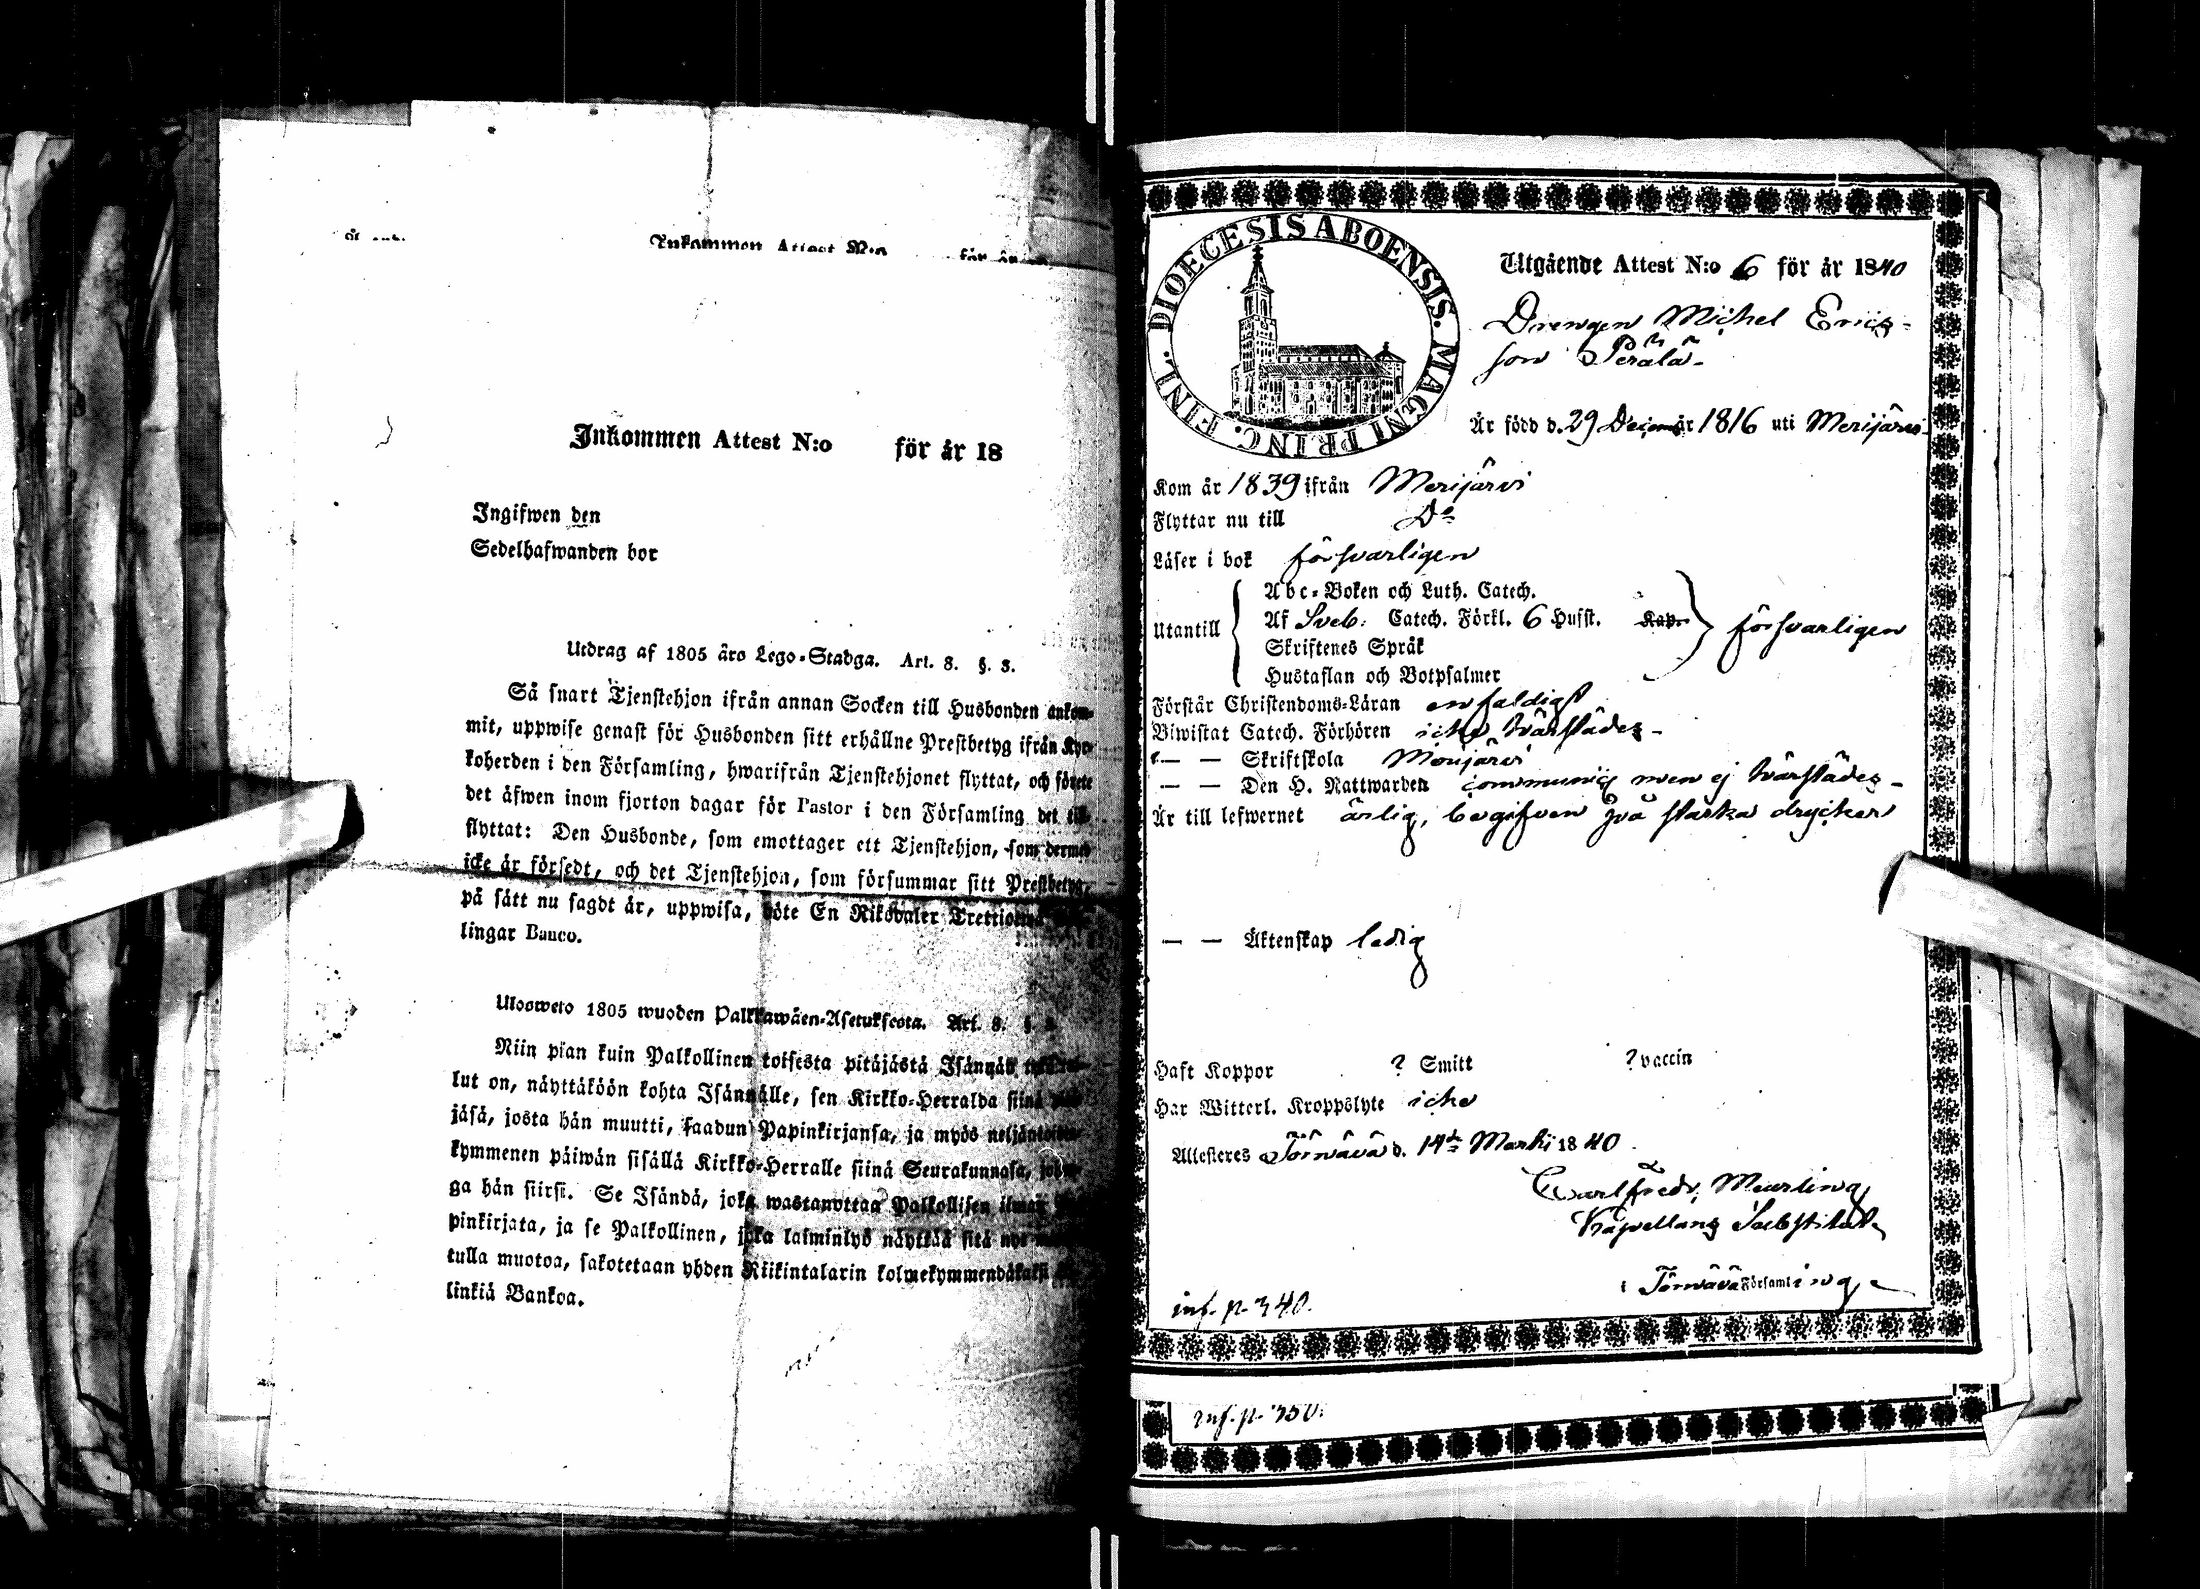 Inkommen Attest N:o för år 18
Inkommen Attest N:o för år 18
Ingifwen den
Sedelhafwanden bor
Utdrag af 1805 års Lego-Stadga. Art. 8. §. 3.
Så snart Tjenstehjon ifrån annan Socken till Husbonden ankom-
mit, uppwise genast för Husbonden sitt erhållne Prestbetyg ifrån Kyr-
koherden i den Församling, hwarifrån Tjenstehjonet flyttat, och förete
det äfwen inom fjorton dagar för Pastor i den Församling det till-
flyttat: Den Husbonde, som emottager ett Tjenstehjon, som dermed
icke är försedt, och det Tjenstehjon, som försummar sitt Prestbetyg,
på sätt nu sagdt är, uppwisa, böte En Riksdaler
lingar Banco.
Ulosweto 1805 wuoden Palkkawäen-Asetuksesta. Art. 8. §.
Niin pian kuin Palkollinen toisesta pitäjästä Isännän
lut on, näyttäköön kohta Isännälle, sen Kirkko-Herralda siinä
jäsä, josta hän muutti, saadun Papinkirjansa, ja myös neljäntoista-
kymmenen päiwän sisällä Kirkko-Herralle siinä Seurakunnasa, johon-
ga hän siirsi. Se Isändä, joka wastanottaa Palkollisen ilman
pinkirjata, ja se Palkollinen, joka laiminlyö näyttää sitä
tulla muotoa, sakotetaan yhden Riikintalarin kolmekymmendäkaksi
linkiä Bankoa.
DIOECESIS ABOENSIS. MAGNI PRINC. FINL.
Utgående Attest N:o 6 för år 1840
Drengen Michel Erics-
son Perälä
Är född d. 29 Decem år 1816 uti Merijärvi
Kom år 1839 ifrån Merijärvi
Flyttar nu till Do
Läser i bok försvarligen
Abc-Boken och Luth. Catech.
Utantill Af Sveb: Catech. Förkl. 6 Husst. Kap. försvarligen
Skriftenes Språk
Hustaflan och Botpsalmer
Förstår Christendoms-Läran enfaldigt
Biwistat Catech. Förhören icke härstädes
— — Skriftskola Merijärvi
— — Den H. Nattwarden communic men ej härstädes
Är till lefwernet ärlig, begifven på starka drycker
— — Äktenskap ledig
Haft Koppor ? Smitt ? vaccin
Har Witterl. Kroppslyte icke
Attesteres Törnävä d. 14de Martii 1840.
Carl Fredr. Mearling
Kapellans Substitut
i Törnävä Församling
inf. p. 340.
inf. p. 350.